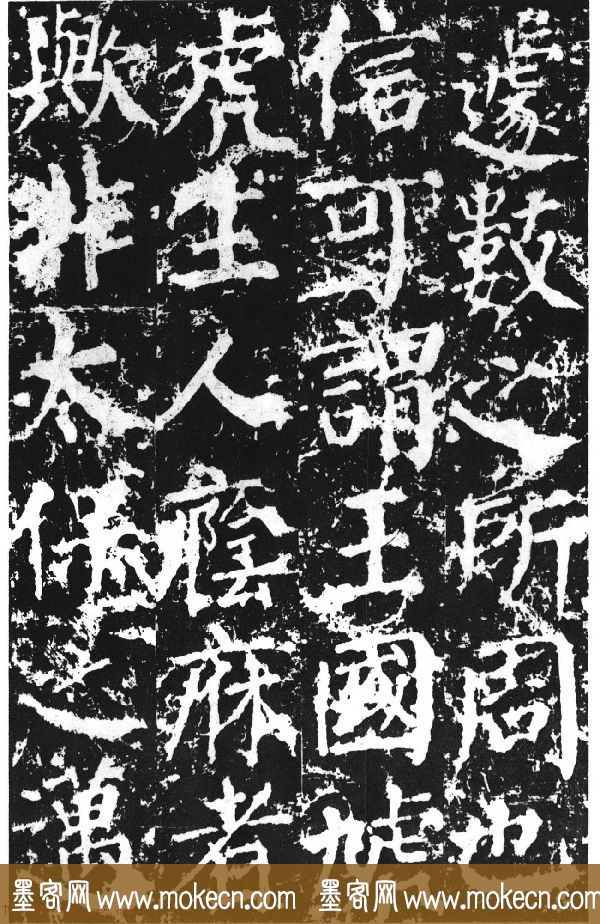 遽數之所周也
信可謂王國虓
虎生人廕庥者
歟非太保之萬
墨客网 www.mokecn.com 墨客网 www.mokecn.com